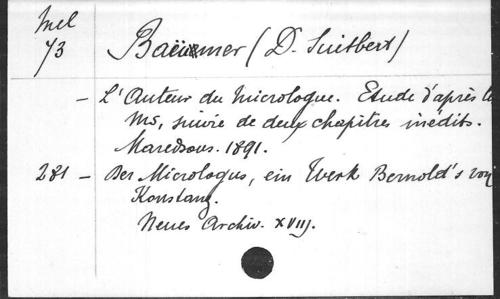 Mel
73
Baeumer (D. Suitbert)
- L'Auteur du Micrologue. Etude d'après le
Ms, suivie de deux chapitres inédits.
Maredsous. 1891.
281 - Der Micrologus, ein Werk Bernold's von
Konstanz.
Neues Archiv. XVIIJ.